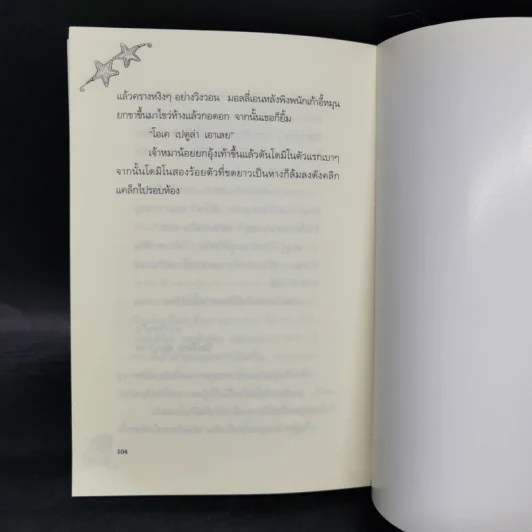 แล้วครางหงิงๆ อย่างวิงวอน มอลลี่เอนหลังพิงพนักเก้าอี้หมุน
ยกขาขึ้นมาไขว่ห้างแล้วกอดอก จากนั้นเธอก็ยิ้ม
"โอเค เปตูล่า เอาเลย"
เจ้าหมาน้อยยกอุ้งเท้าขึ้นแล้วดันโดมิโนตัวแรกเบาๆ
จากนั้นโดมิโนสองร้อยตัวที่ขดยาวเป็นหางก็ล้มลงดังคลิก
แคล็กไปรอบห้อง
104